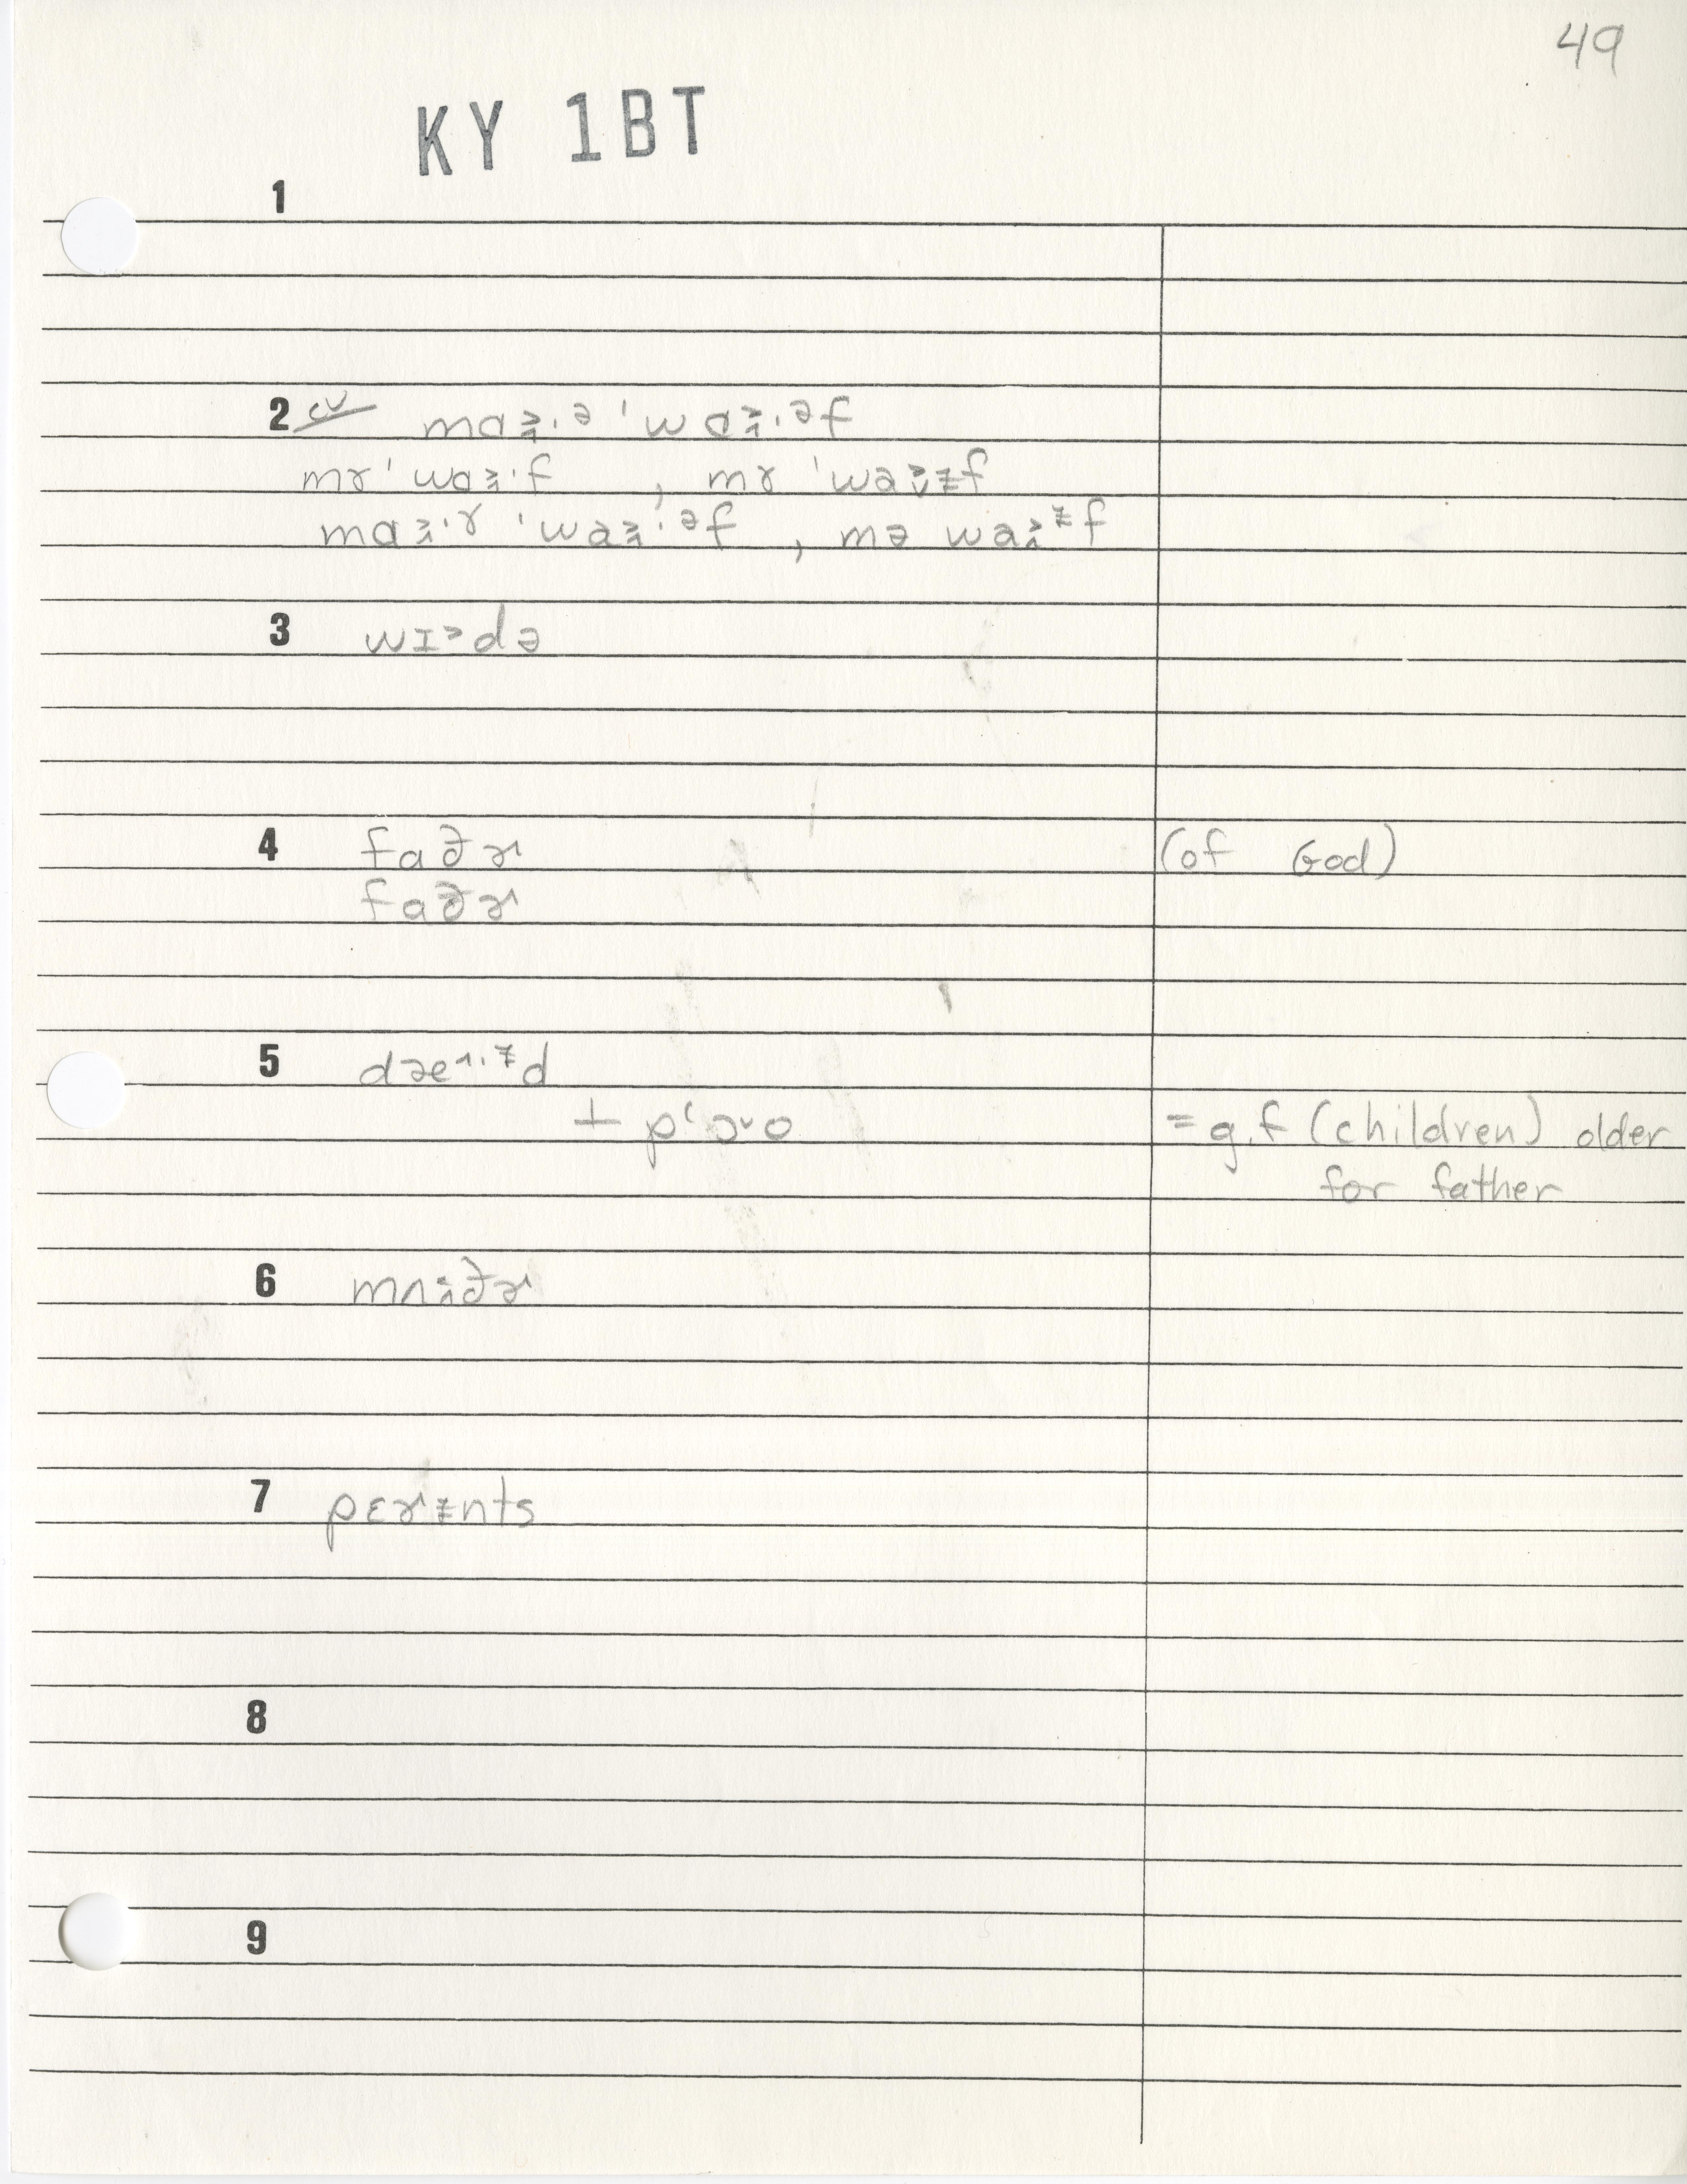 49
KY 1BT
1
2 cv mɑ˃̣ᶦ·ə ˈwɑ˃ᶦ·əf
mɤ ˈwɑ˃ᶦ·f , mɤ ˈwa˃ᵻf
mɑ˃ᶦ·ɤ ˈwa˃ᶦ·əf , mə wa˃ᵻf
3 wɪ˃də
4 faðɚ (of God)
faðɚ
5 dæe˄·ᵻd
+ pʻɔ˅o = g.f (children) older
for father
6 mʌ˔ðɚ
7 pɛɚᵻnts
8
9